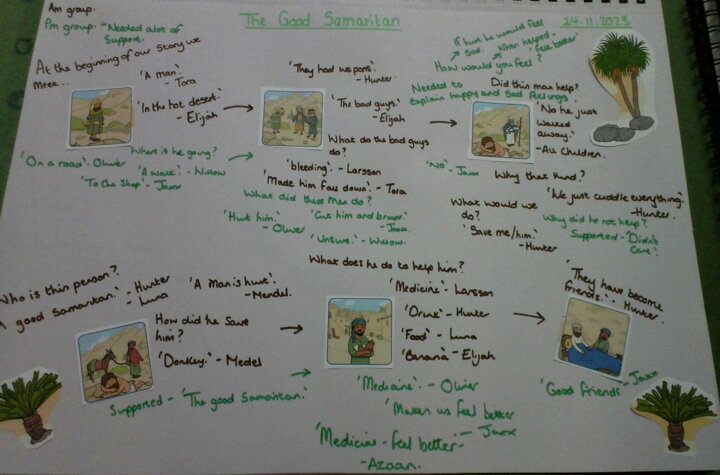 Am group.
The Good Samaritan
24.11.2023
Pm group - Needed alot of
Support.
At the beginning of our story we
meet...
'A man.'
- Tora
'In the hot desert.'
- Elijah
Where is he going?
'On a road' - Oliver
'A walk' - Willow
'To the Shop' - Jaxx
'They had wepons.'
- Hunter
'The bad guys.'
- Elijah
What do the bad guys
do?
'bleeding.' - Larsson
'Made him fall down.' - Tora
What did these Men do?
'Hurt him.'
- Oliver
'Cut him and bruise.'
- Jaxx
'Unsure.' - Willow
If hurt he would feel
Sad.
When helped -
'feel better'
How would you feel?
Needed to
explain happy and sad feelings
Did this man help?
'No he just
walked
away.'
- All Children.
'No' - Jaxx
Why that kind?
'We just cuddle everything'.
- Hunter.
What would we
do?
'Save me/him.'
- Hunter
Why did he not help?
Supported - 'Didn't
Care'.
Who is this person?
- Hunter
'A good samaritan.' - Luna
'A Man is hurt'.
- Mendel.
How did he save
him?
'Donkey.' - Medel
Supported - 'The good Samaritan.'
What does he do to help him?
'Medicine' - Larsson
'Drink' - Hunter
'Food' - Luna
'Banana' - Elijah
'Medicine'. - Oliver
'Makes us feel better
- Jaxx
'Medicine - feel better -
- Azaan.
'They have become
friends.' - Hunter.
'Good friends' - Jaxx